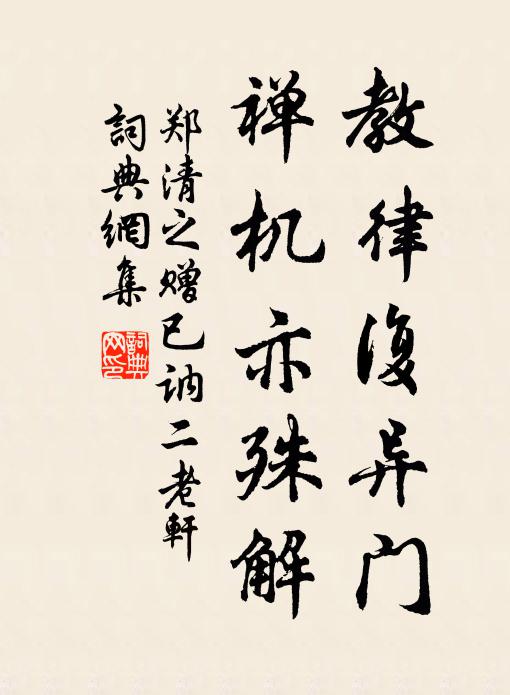 教律復异门
禅机亦殊解
郑清之赠已讷二老軒
詞典網集
詞典
网印